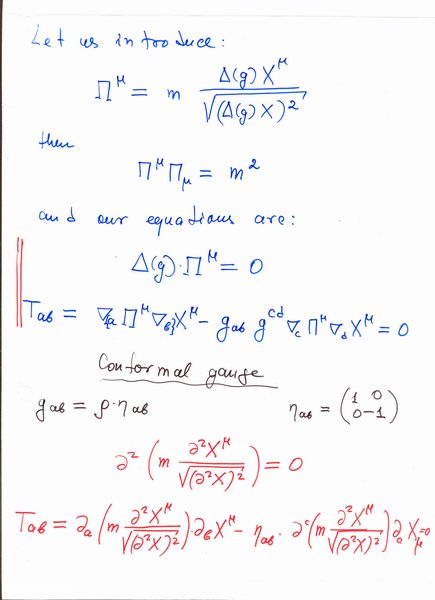 Let us introduce:
Π^μ = m Δ(g)X^μ / √(Δ(g)X)²
then
Π^μ Π_μ = m²
and our equations are:
Δ(g)·Π^μ = 0
T_ab = ∇_{a Π^μ ∇_b} X^μ − g_ab g^cd ∇_c Π^μ ∇_d X^μ = 0
Conformal gauge
g_ab = ρ·η_ab η_ab = (1 0 0 −1)
∂² (m ∂²X^μ / √(∂²X)²) = 0
T_ab = ∂_a (m ∂²X^μ / √(∂²X)²)·∂_b X^μ − η_ab · ∂^c (m ∂²X^μ / √(∂²X)²) ∂_a X_μ = 0